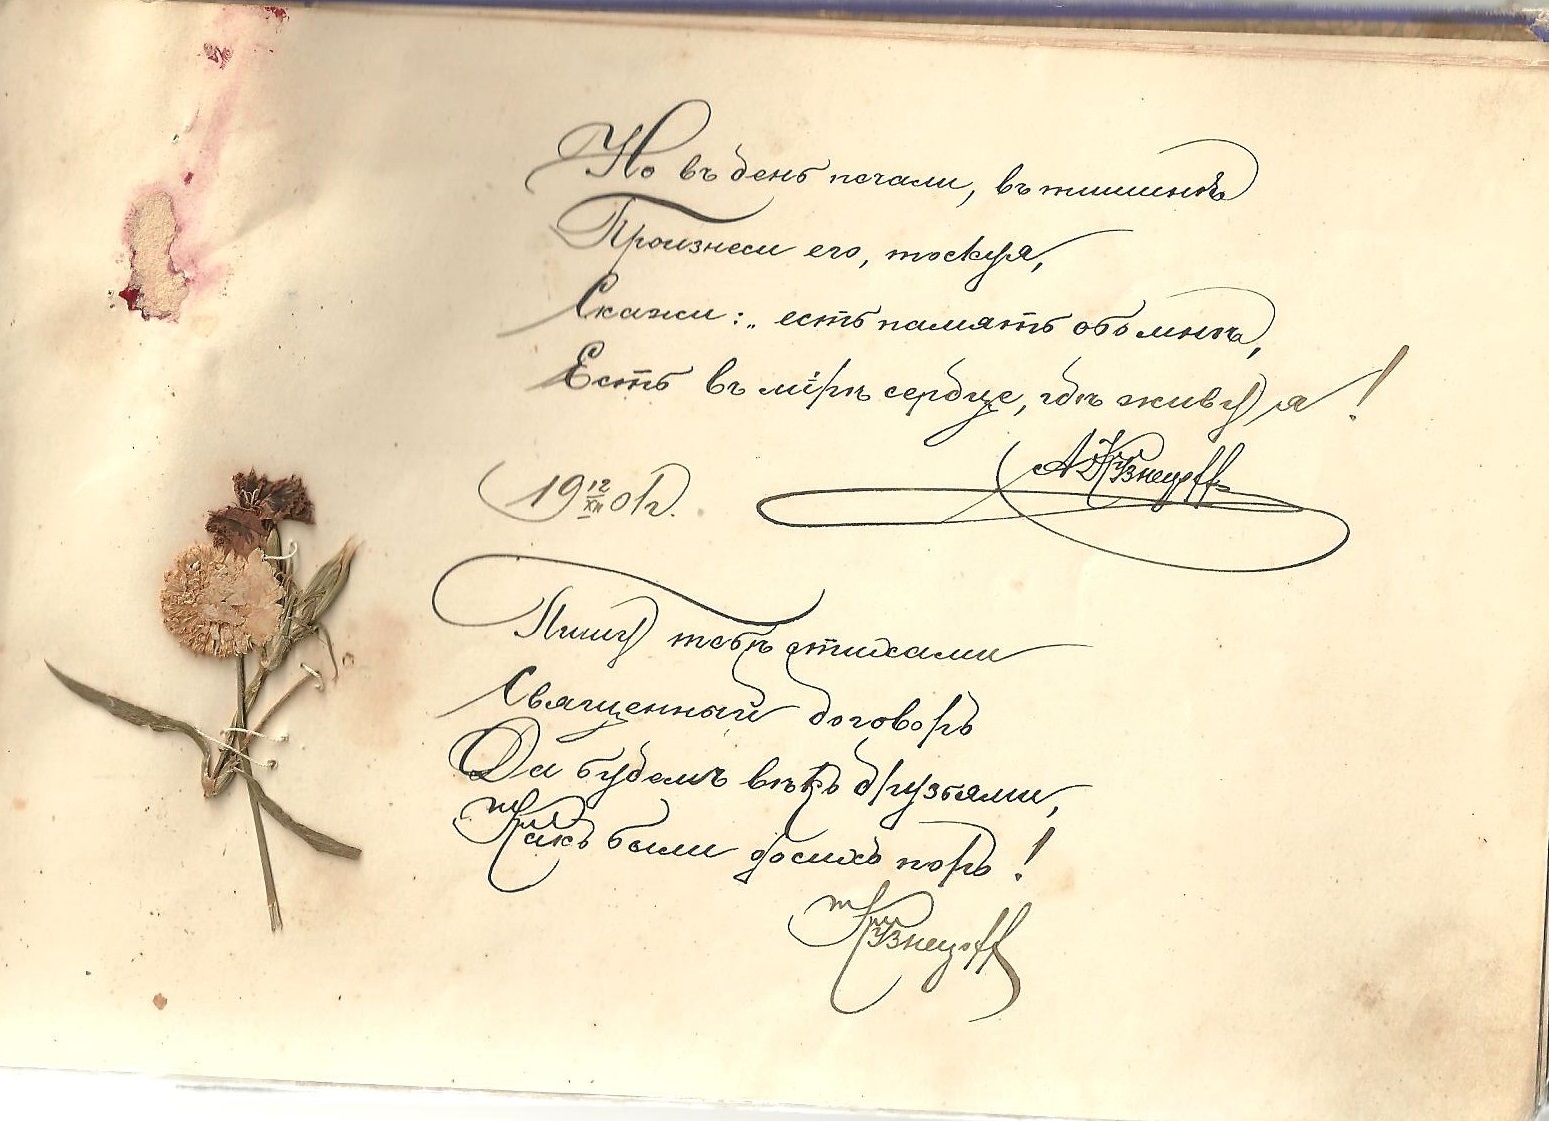 Но въ день печали, въ тишинѣ
Произнеси его, тоскуя,
Скажи: „ есть память обо мнѣ,
Есть въ мірѣ сердце, гдѣ живу я!
А Кузнецоff
19 12/XII 01 г.
Пишу тебѣ стихами
Священный договоръ
Да будемъ вѣкъ друзьями,
Какъ были досихъ поръ!
Кузнецоff